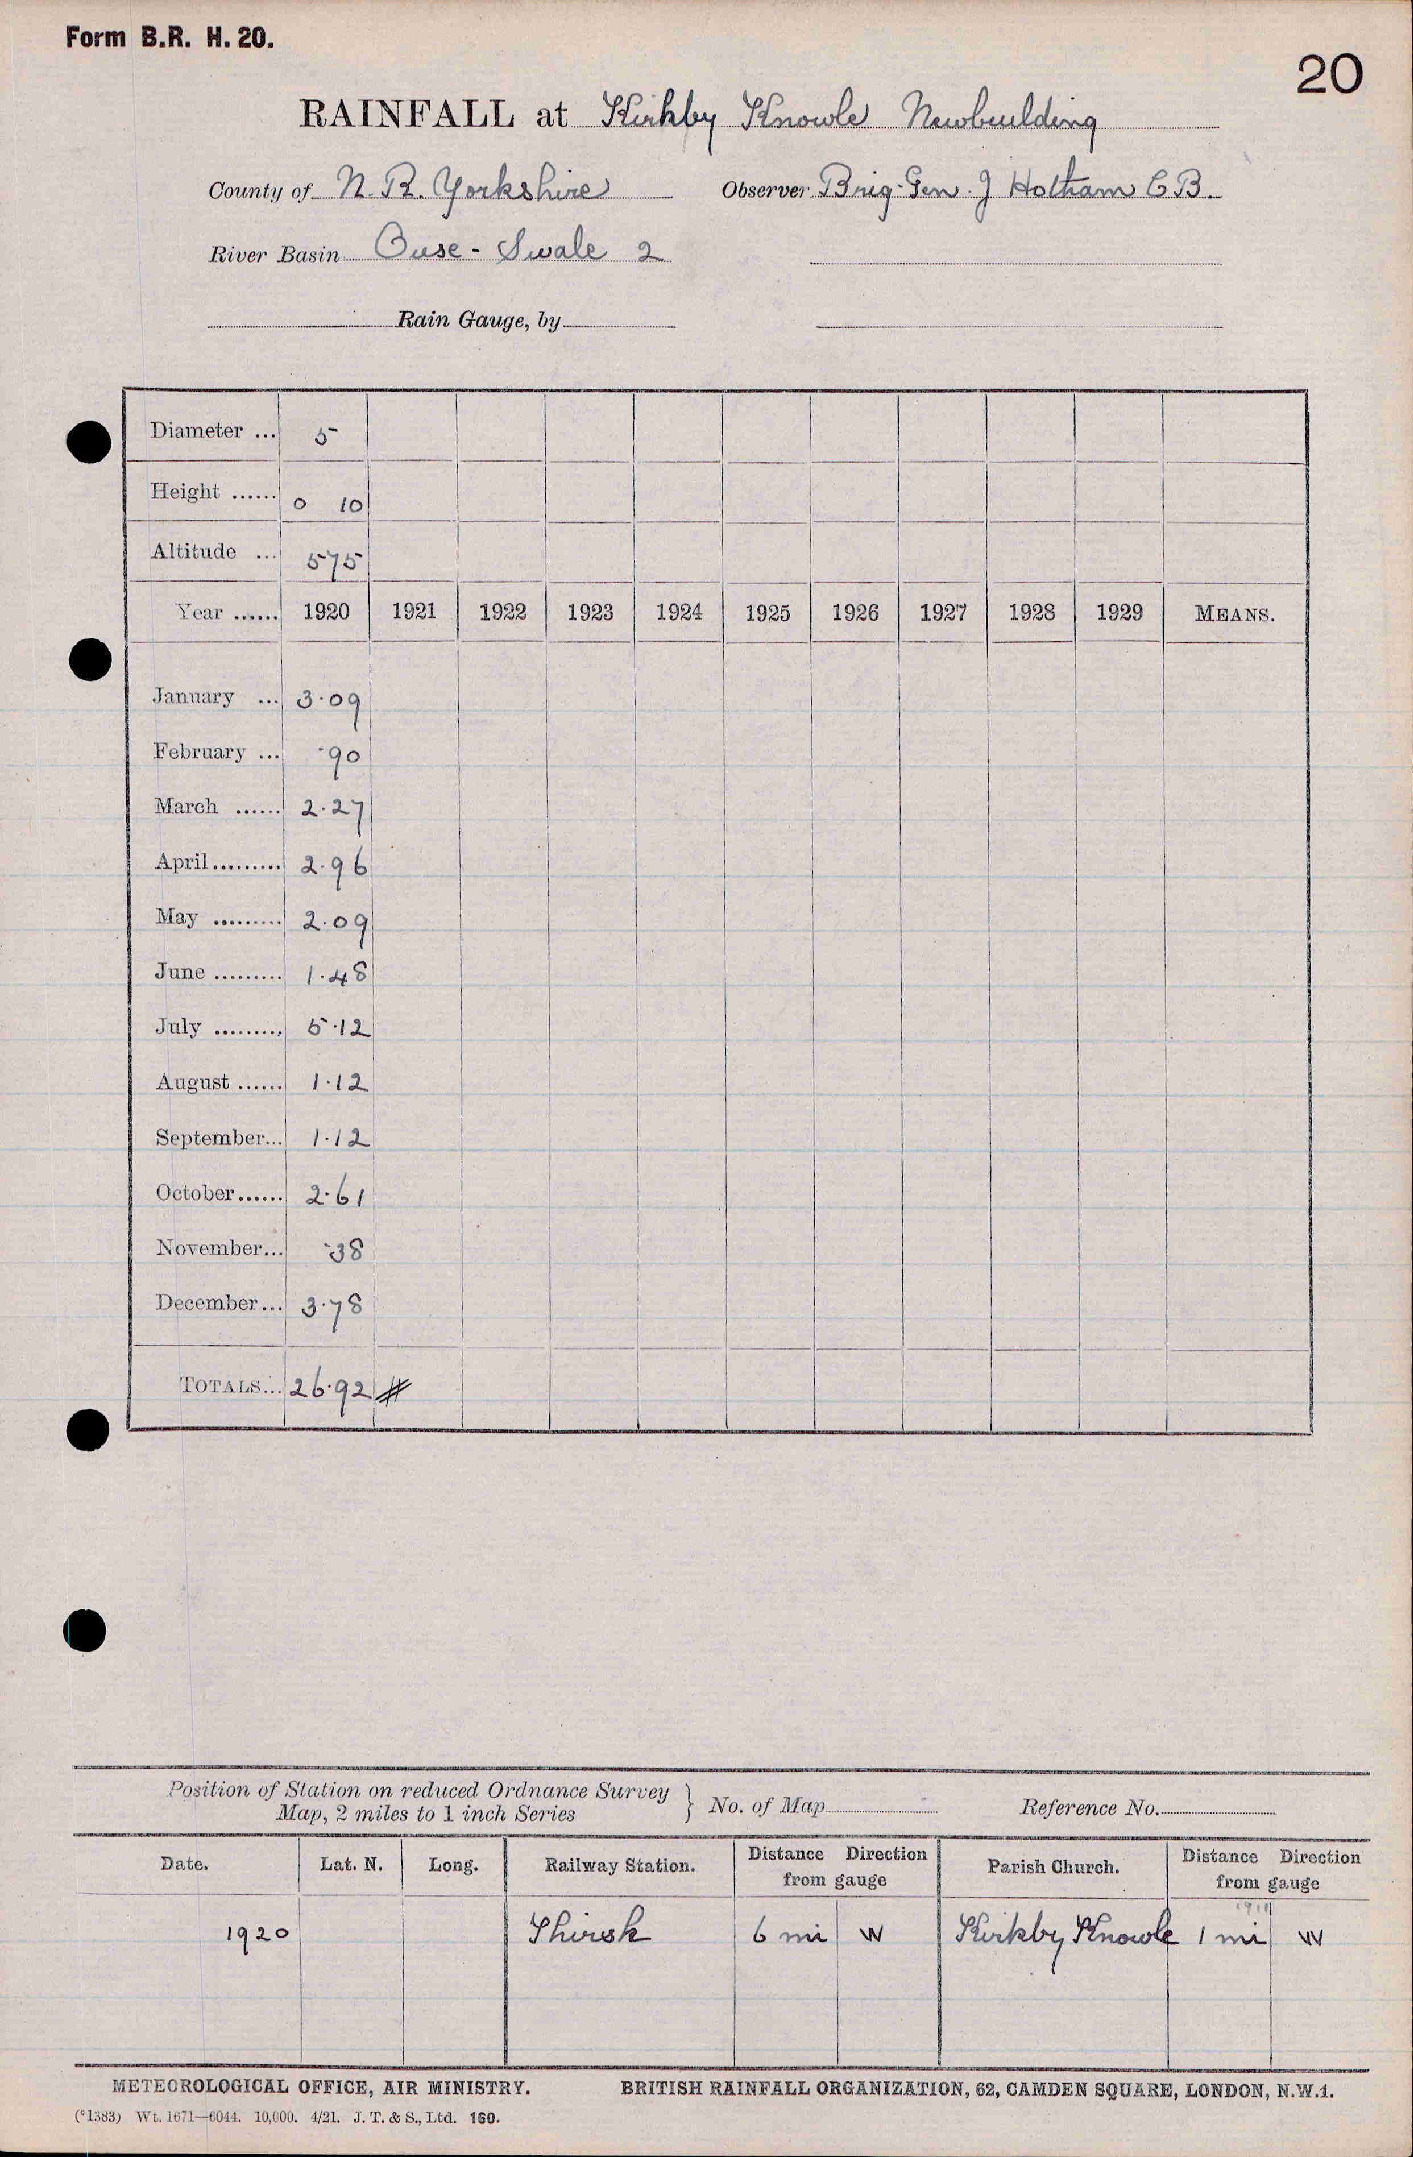 Form B.R. H. 20.
20
RAINFALL at Kirkby Knowle Newbuilding
County of N. R. Yorkshire Observer Brig-Gen. J Hotham C B.
River Basin Ouse - Swale 2
Rain Gauge, by
Diameter ... 5
Height ...... 0 10
Altitude ... 575
Year ...... 1920 1921 1922 1923 1924 1925 1926 1927 1928 1929 MEANS.
January ... 3.09
February ... .90
March ...... 2.27
April......... 2.96
May ......... 2.09
June ......... 1.48
July ......... 5.12
August ...... 1.12
September... 1.12
October...... 2.61
November... .38
December... 3.78
TOTALS... 26.92 #
Position of Station on reduced Ordnance Survey
Map, 2 miles to 1 inch Series } No. of Map Reference No.
Date. Lat. N. Long. Railway Station. Distance Direction from gauge Parish Church. Distance Direction from gauge
1920 Thirsk 6 mi W Kirkby Knowle 1 mi W
METEOROLOGICAL OFFICE, AIR MINISTRY. BRITISH RAINFALL ORGANIZATION, 62, CAMDEN SQUARE, LONDON, N.W.1.
(*1383) Wt. 1671—6044. 10,000. 4/21. J. T. & S., Ltd. 160.